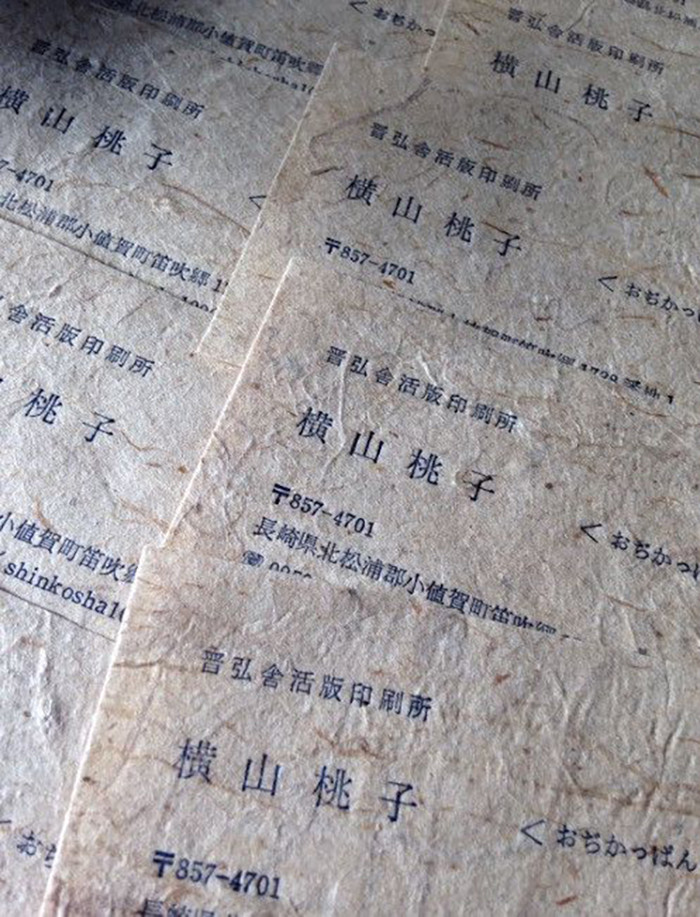 県北松浦郡小値賀町笛吹郷
< おぢかっ
晋弘舎活版印刷所
横山桃子
7-4701
北松浦郡小値賀町笛吹郷 1
晋弘舎活版印刷所
横山桃子
晋弘舎活版印刷所
横山桃子
〒857-4701
< おぢかっ
舎活版印刷所
桃子
小値賀町笛吹
shinkosha1
晋弘舎活版印刷所
横山桃子
〒857-4701
< おぢかっ
長崎県北松浦郡小値賀町笛吹郷
晋弘舎活版印刷所
横山桃子
< おぢかっぱん
〒857-4701
長崎県
< おぢ